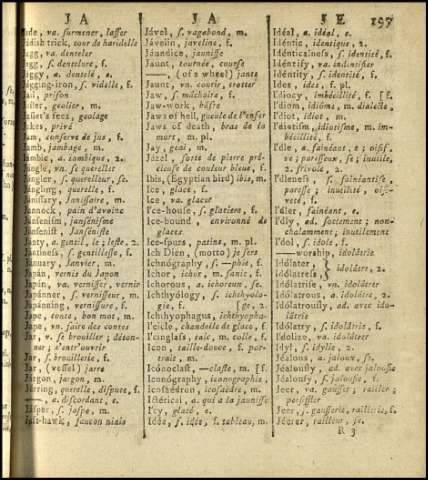 J A
J A
J E 197
Jade, va. surmener, lasser
Jadish trick, tour de haridelle
Jagg, va. denteler
Jagg, s. dentelure, f.
Jaggy, a. dentelé, e.
Jagging-iron, s. videlle, f.
Jail, prison
Jailer, geolier, m.
Jailer's fees, geolage
Jakes, privé
Jam, conserve de jus, f.
Jamb, jambage, m.
Iambic, a. iambique, 2.
Jangle, vn. se quereller
Jangler, s. querelleur, se.
Jangling, querelle, f.
Janissary, Janissaire, m.
Jannock, pain d'avoine
Jansenism, jansénisme
Jansenist, Janséniste
Janty, a. gentil, le; leste, 2.
Jantiness, s. gentillesse, f.
January, Janvier, m.
Japán, vernis du Japon
Japán, va. vernisser, vernir
Japánner, s. vernisseur, m.
Japánning, vernissure, f.
Jape, conte, bon mot, m.
Jape, vn. faire des contes
Jar, v. se brouiller; détonner; s'entr'ouvrir
Jar, s. brouillerie, f.
Jar, (vessel) jarre
Jargon, jargon, m.
Jarring, querelle, dispute, f.
—, a. discordant, e.
Jasper, s. jaspe, m.
Jash-hawk, faucon niais
Jável, s. vagabond, m.
Jávelin, javeline, f.
Jáundice, jaunisse
Jaunt, tournée, course
—, (of a wheel) jante
Jaunt, vn. courir, trotter
Jaw, s. mâchoire, f.
Jaw-work, bâfre
Jaws of hell, gueule de l'enfer
Jaws of death, bras de la mort, m. pl.
Jay, geai, m.
Jázel, sorte de pierre précieuse de couleur bleue, f.
Ibis, (Egyptian bird) ibis, m.
Ice, glace, f.
Ice, va. glacer
I'ce-house, s. glaciere, f.
Ice-bound, environné de glaces
Ice-spurs, patins, m. pl.
Ich Dien, (motto) je sers
Ichnógraphy, s. —phie, f.
Ichor, ichor, m. sanie, f.
Ichorous, a. ichoreux, se.
Ichthyólogy, s. ichthyologie, f. [ge, 2.
Ichthyophagus, ichthyopha-
I'cicle, chandelle de glace, f.
I'cinglass, talc, m. colle, f.
Icon, taille-douce, f. portrait, m.
Icónoclast, —claste, m. [f.
Iconólogy, iconographie,
Icosihédron, icosaèdre, m.
Ictérical, a. qui a la jaunisse
I'cy, glacé, e.
Idea, s. idée, f. tableau, m.
Idéal, a. idéal, e.
Idéntic, identique, 2.
Idénticalness, s. identité, f.
Idéntify, va. indentifier
Idéntity, s. identité, f.
Ides, ides, f. pl.
I'diocy, imbécillité, f. [f.
I'diom, idiôme, m. dialecte,
I'diot, idiot, m.
I'diotism, idiotisme, m. imbécillité, f.
I'dle, a. fainéant, e; oisif, ve; paresseux, se; inutile, 2. frivole, 2.
I'dleness, s. fainéantise, paresse; inutilité, oisiveté, f.
I'dler, fainéant, e.
I'dly, ad. sottement; nonchalamment, inutilement
I'dol, s. idole, f.
—worship, idolâtrie
Idólater, Idolátress, } idolâtre, 2.
Idólatrise, vn. idolâtrer
Idólatrous, a. idolâtre, 2.
Idólatrously, ad. avec idolâtrie
Idólatry, s. idolâtrie, f.
I'dolize, va. idolâtrer
Idyl, s. idylle, 2.
Jéalous, a. jaloux, se.
Jéalously, ad. avec jalousie
Jéalousy, s. jalousie, f.
Jeer, va. gausser; railler; persiffler
Jeer, s. gausserie, raillerie, f.
Jéerer, railleur, se.
R 3